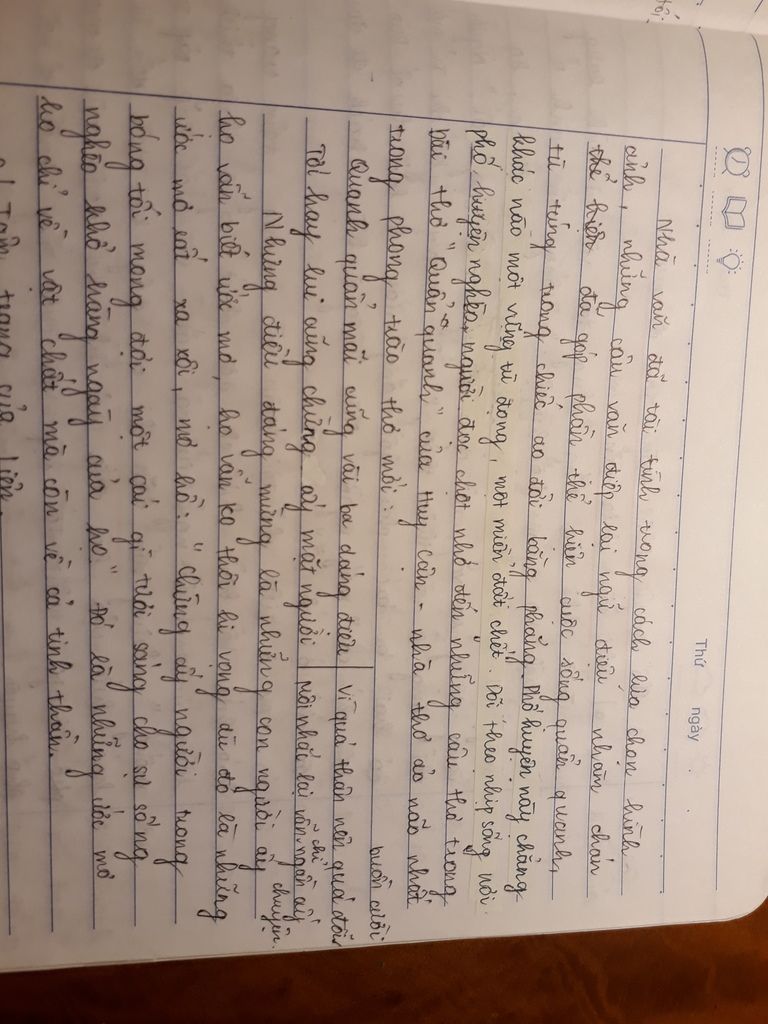 Thứ ngày
Nhà văn đã tài tình trong cách lựa chọn hình
ảnh, những câu văn điệp lại ngữ điệu nhàm chán
thể hiện đã góp phần thể hiện cuộc sống quẩn quanh,
tù túng trong chiếc ao đời bằng phẳng. Phố huyện này chẳng
khác nào một vũng tù đọng, một miền đất chết. Dõi theo nhịp sống nơi
phố huyện nghèo, người đọc chợt nhớ đến những câu thơ trong
bài thơ "Quẩn quanh" của Huy Cận - nhà thơ ảo não nhất
trong phong trào thơ mới:
Quanh quẩn mãi cũng vài ba dáng điệu
Tới hay lui cũng chừng ấy mặt người
Vì quá thân nên quá đỗi buồn cười
Môi nhắc lại vẫn chỉ ngần ấy chuyện.
Những điều đáng mừng là những con người ấy
họ vẫn biết ước mơ, họ vẫn ko thôi hi vọng dù đó là những
ước mơ rất xa xôi, mơ hồ: "chừng ấy người trong
bóng tối mong đợi một cái gì tươi sáng cho sự sống
nghèo khổ hằng ngày của họ" Đó là những ước mơ
ko chỉ về vật chất mà còn về cả tinh thần.
Tâm trạng của Liên.